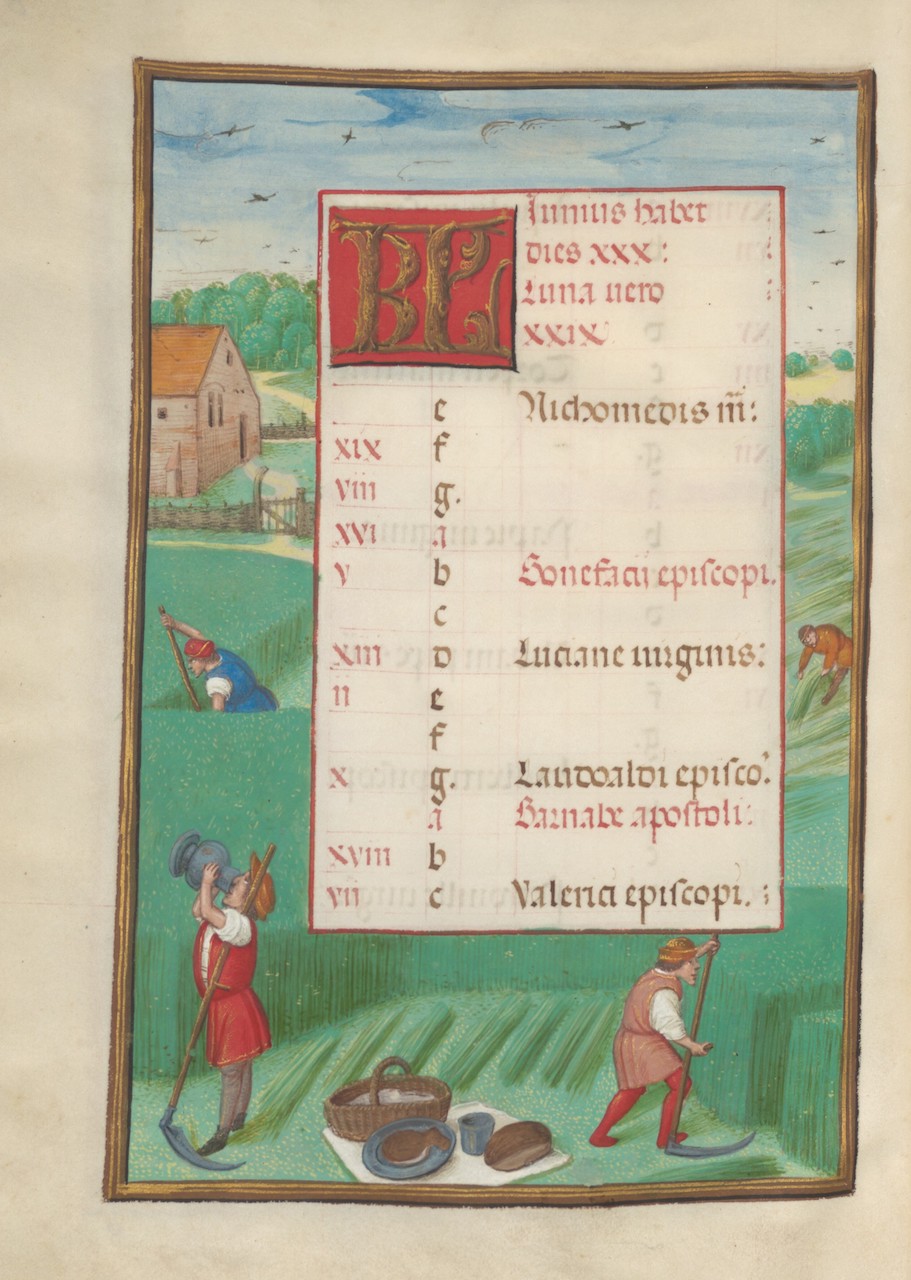 KL Iunius habet
dies xxx:
Luna uero
xxix
e Nichomedis m̄:
xix f
viii g.
xvi a
v b Bonefacij episcopi.
c
xiii d Luciane uirginis:
ii e
f
x g. Landoaldi episco.
a Barnabe apostoli:
xviii b
vii c Valerici episcopi. :